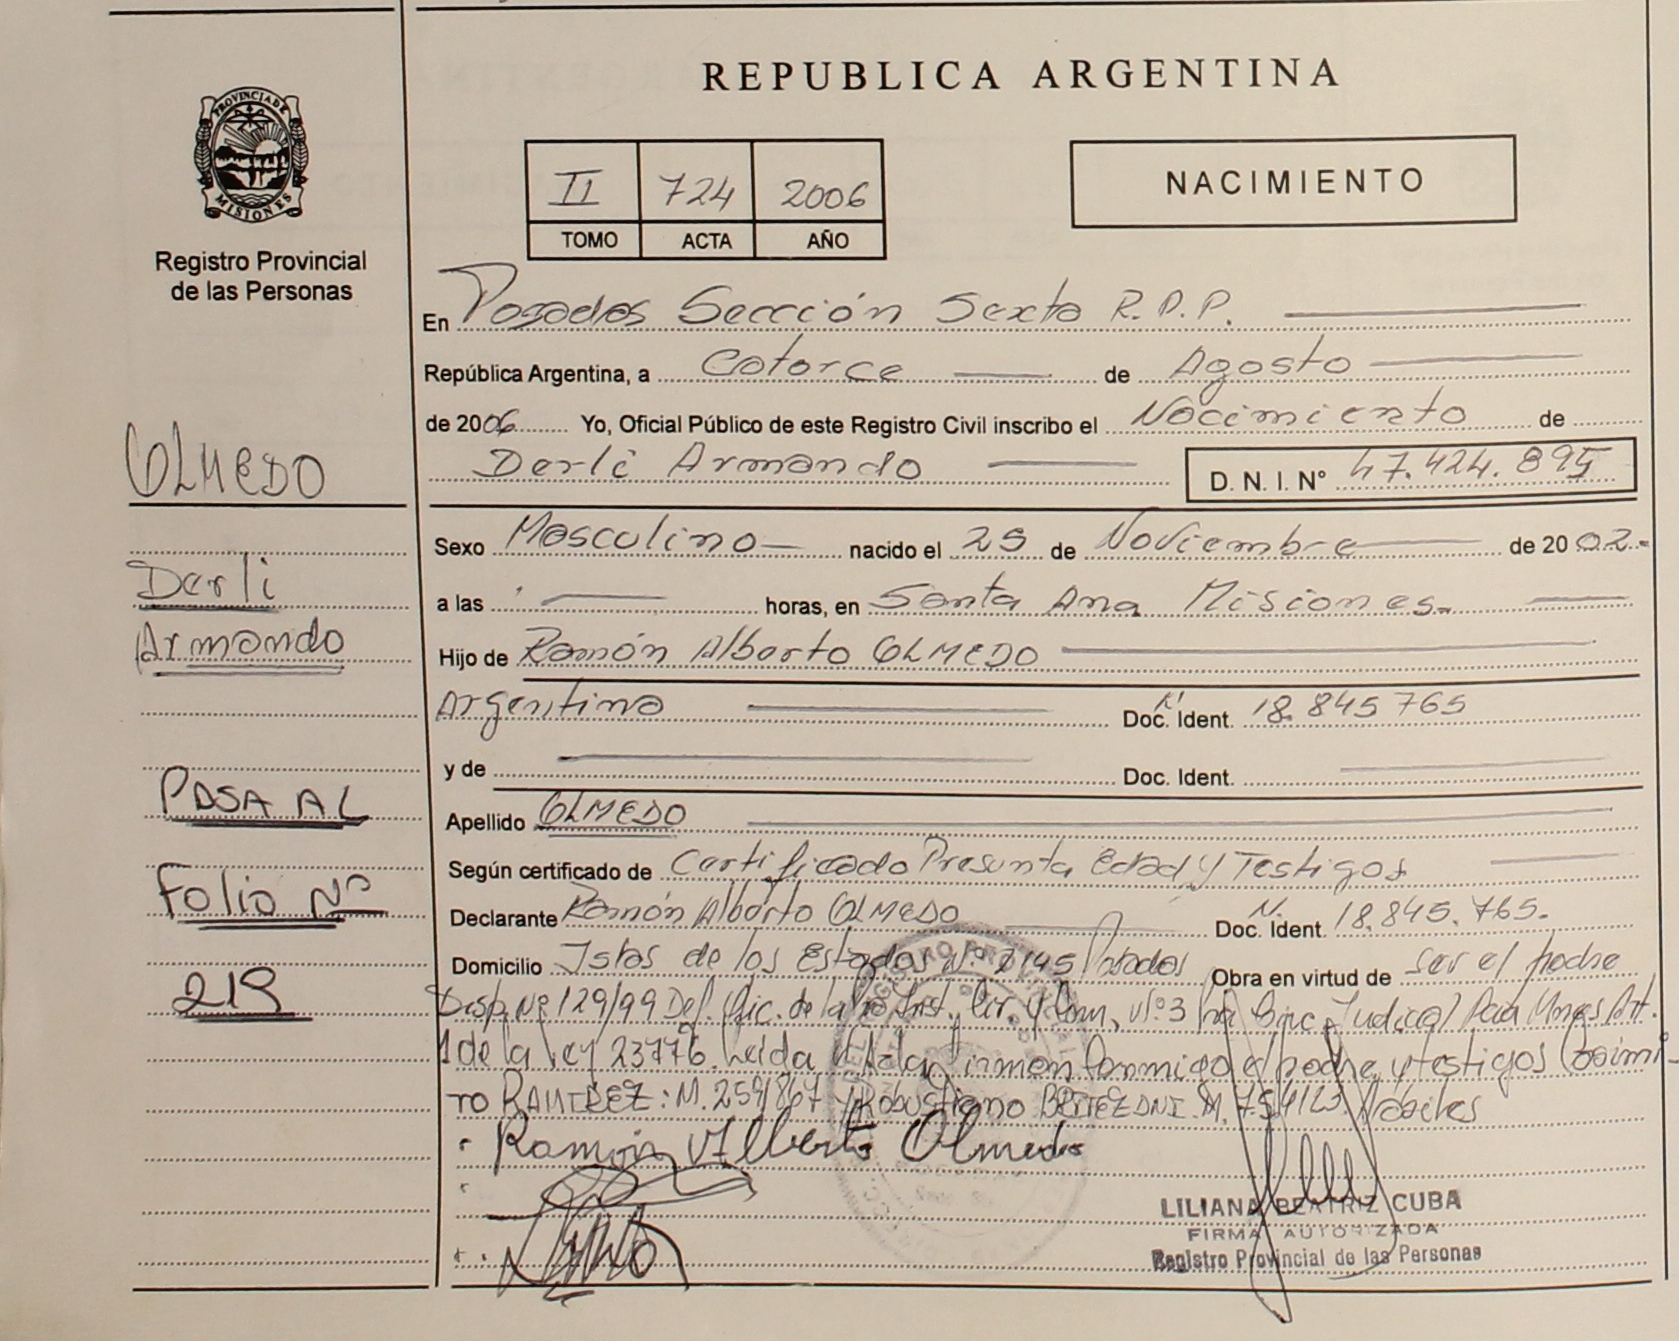 REPUBLICA ARGENTINA
PROVINCIA DE
MISIONES
Registro Provincial
de las Personas
II 724 2006
TOMO ACTA AÑO
NACIMIENTO
En Posadas Sección Sexta R.P.P.
República Argentina, a Catorce de Agosto
de 2006 Yo, Oficial Público de este Registro Civil inscribo el Nacimiento de
Derli Armando D. N. I. Nº 47.424.895
OLMEDO
Derli
Armando
PASA AL
Folio Nº
219
Sexo Masculino nacido el 25 de Noviembre de 2002.-
a las horas, en Santa Ana Misiones.
Hijo de Ramón Alberto OLMEDO
Argentino Doc. Ident. 18.845765
y de Doc. Ident.
Apellido OLMEDO
Según certificado de Certificado Presunta Edad y Testigos
Declarante Ramón Alberto OLMEDO Doc. Ident. N. 18.845.765.
Domicilio Islas de los Estados Nº 7145 Posadas Obra en virtud de ser el padre
Disp. Nº 129/99 Def. Ofic. de la Inst. Cir. y Com. Nº 3 Circ. Judicial Art.
1 de la ley 23776. Leida el Acta Firman conmigo el padre y testigos Casimi-
ro RAMIREZ: M. y Robustiano BENITEZ DNI. M. Hábiles
Ramón Alberto Olmedo
LILIANA BEATRIZ CUBA
FIRMA AUTORIZADA
Registro Provincial de las Personas